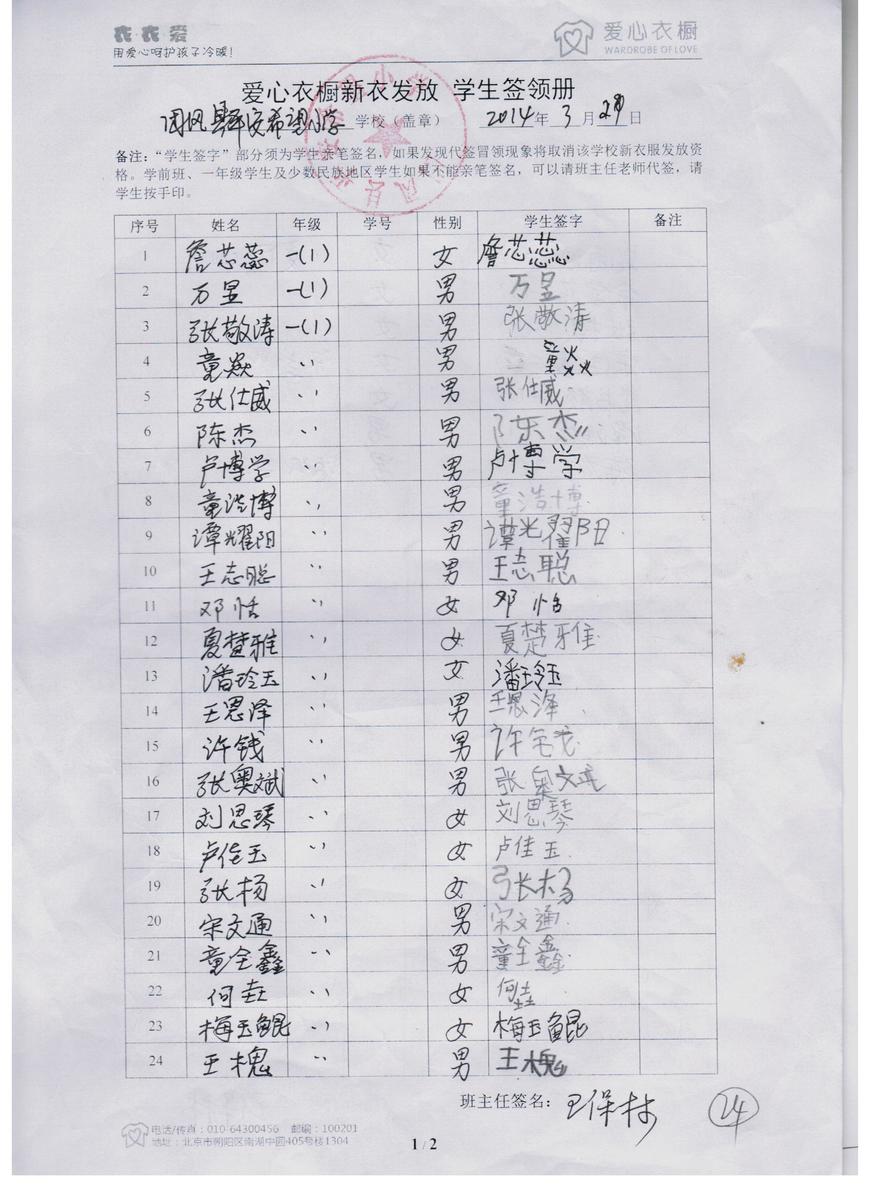 衣衣爱
用爱心呵护孩子冷暖!
爱心衣橱
WARDROBE OF LOVE
爱心衣橱新衣发放 学生签领册
团风县平安希望小学 学校（盖章） 2014年 3月 29日
备注：“学生签字”部分须为学生亲笔签名，如果发现代签冒领现象将取消该学校新衣服发放资
格。学前班、一年级学生及少数民族地区学生如果不能亲笔签名，可以请班主任老师代签，请
学生按手印。
序号 姓名 年级 学号 性别 学生签字 备注
1 詹芯蕊 一(1) 女 詹芯蕊
2 万昱 一(1) 男 万昱
3 张敬涛 一(1) 男 张敬涛
4 童焱 〃 男 童焱
5 张仕威 〃 男 张仕威
6 陈杰 〃 男 陈杰
7 卢博学 〃 男 卢博学
8 童浩博 〃 男 童浩博
9 谭光耀阳 〃 男 谭光耀阳
10 王志聪 〃 男 王志聪
11 邓恬 〃 女 邓恬
12 夏楚雅 〃 女 夏楚雅
13 潘玲玉 〃 女 潘玲玉
14 王恩泽 〃 男 王恩泽
15 许钱 〃 男 许钱
16 张奥斌 〃 男 张奥斌
17 刘思琴 〃 女 刘思琴
18 卢佳玉 〃 女 卢佳玉
19 张杨 〃 女 张杨
20 宋文通 〃 男 宋文通
21 童全鑫 〃 男 童全鑫
22 何垚 〃 女 何垚
23 梅玉鲲 〃 女 梅玉鲲
24 王槐 〃 男 王槐
班主任签名： 王保林 24
电话/传真：010-64300456 邮编：100201
地址：北京市朝阳区南湖中园405号楼1304
1 / 2